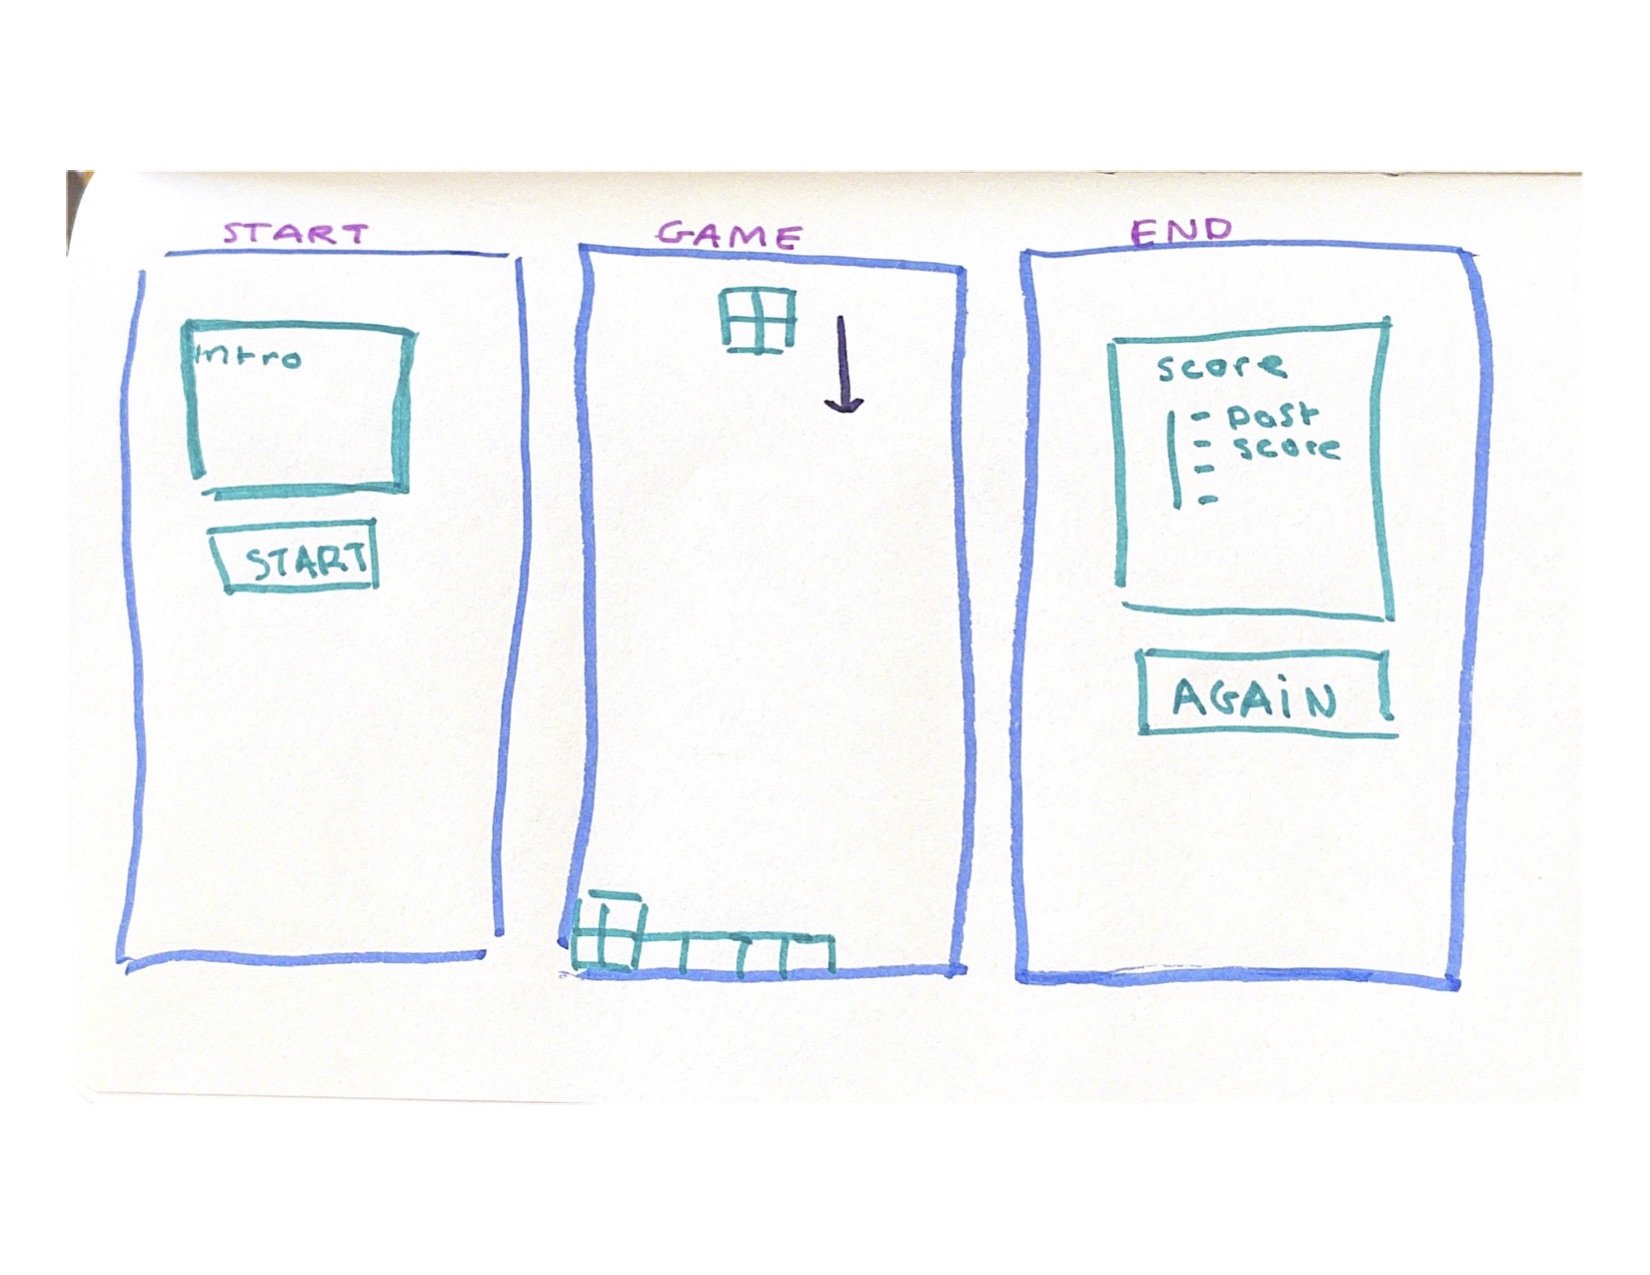 START
Intro
START
GAME
END
score
- past
- score
-
-
AGAiN